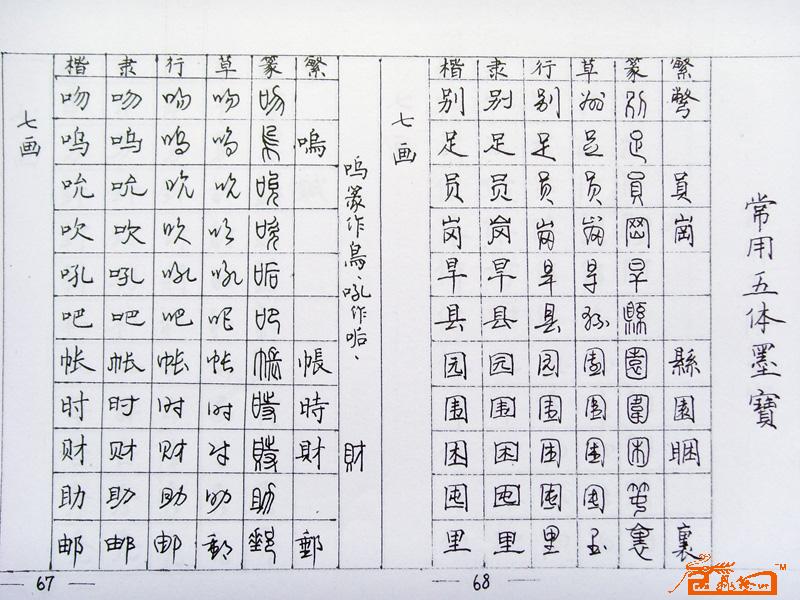 楷 隶 行 草 篆 繁
七画
吻 吻 吻 吻 吻
呜 呜 呜 呜 烏 嗚
吭 吭 吭 吭 吭
吹 吹 吹 吹 吹
吼 吼 吼 吼
吧 吧 吧 吧 吧
帐 帐 帐 帐 帳 帳
时 时 时 时 時 時
财 财 财 财 財 財
助 助 助 助 助
邮 邮 邮 邮 郵 郵
呜篆作烏、吼作㖃、
財
67
楷 隶 行 草 篆 繁
七画
别 别 别 别 别 彆
足 足 足 足 足
员 员 员 员 員 員
岗 岗 岗 岗 岡 崗
旱 旱 旱 旱 旱
县 县 县 县 縣
园 园 园 园 園 縣
围 围 围 围 圍 園
困 困 困 困 困 睏
囤 囤 囤 囤
里 里 里 里 裏 裏
68
常用五体墨寳